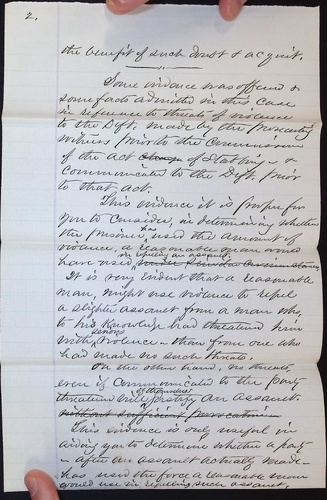 2.
the benefit of such doubt & acquit.
Some evidence was offered &
some facts admitted in this case
in reference to threats of violence
to the Deft. made by the prosecuting
witness prior to the Commission
of the act of Stabbing - &
Communicated to the Deft. prior
to that act.
This evidence it is proper for
you to Consider, in determining whether
the prisoner has used the amount of
violence, a reasonable man would
in repelling an assault,
have used under similar circumstances
It is very evident that a reasonable
man, might use violence to repel
a slighter assault from a man who,
to his Knowledge had threatened him
with serious violence - than from one who
had made no such threats.
On the other hand, no threats,
even if Communicated to the party
threatened will of themselves justify an assault.
without sufficient provocation
This evidence is only useful in
aiding you to determine whether a party
- after an assault actually made -
has used the force a reasonable man
would use in repelling such assault.